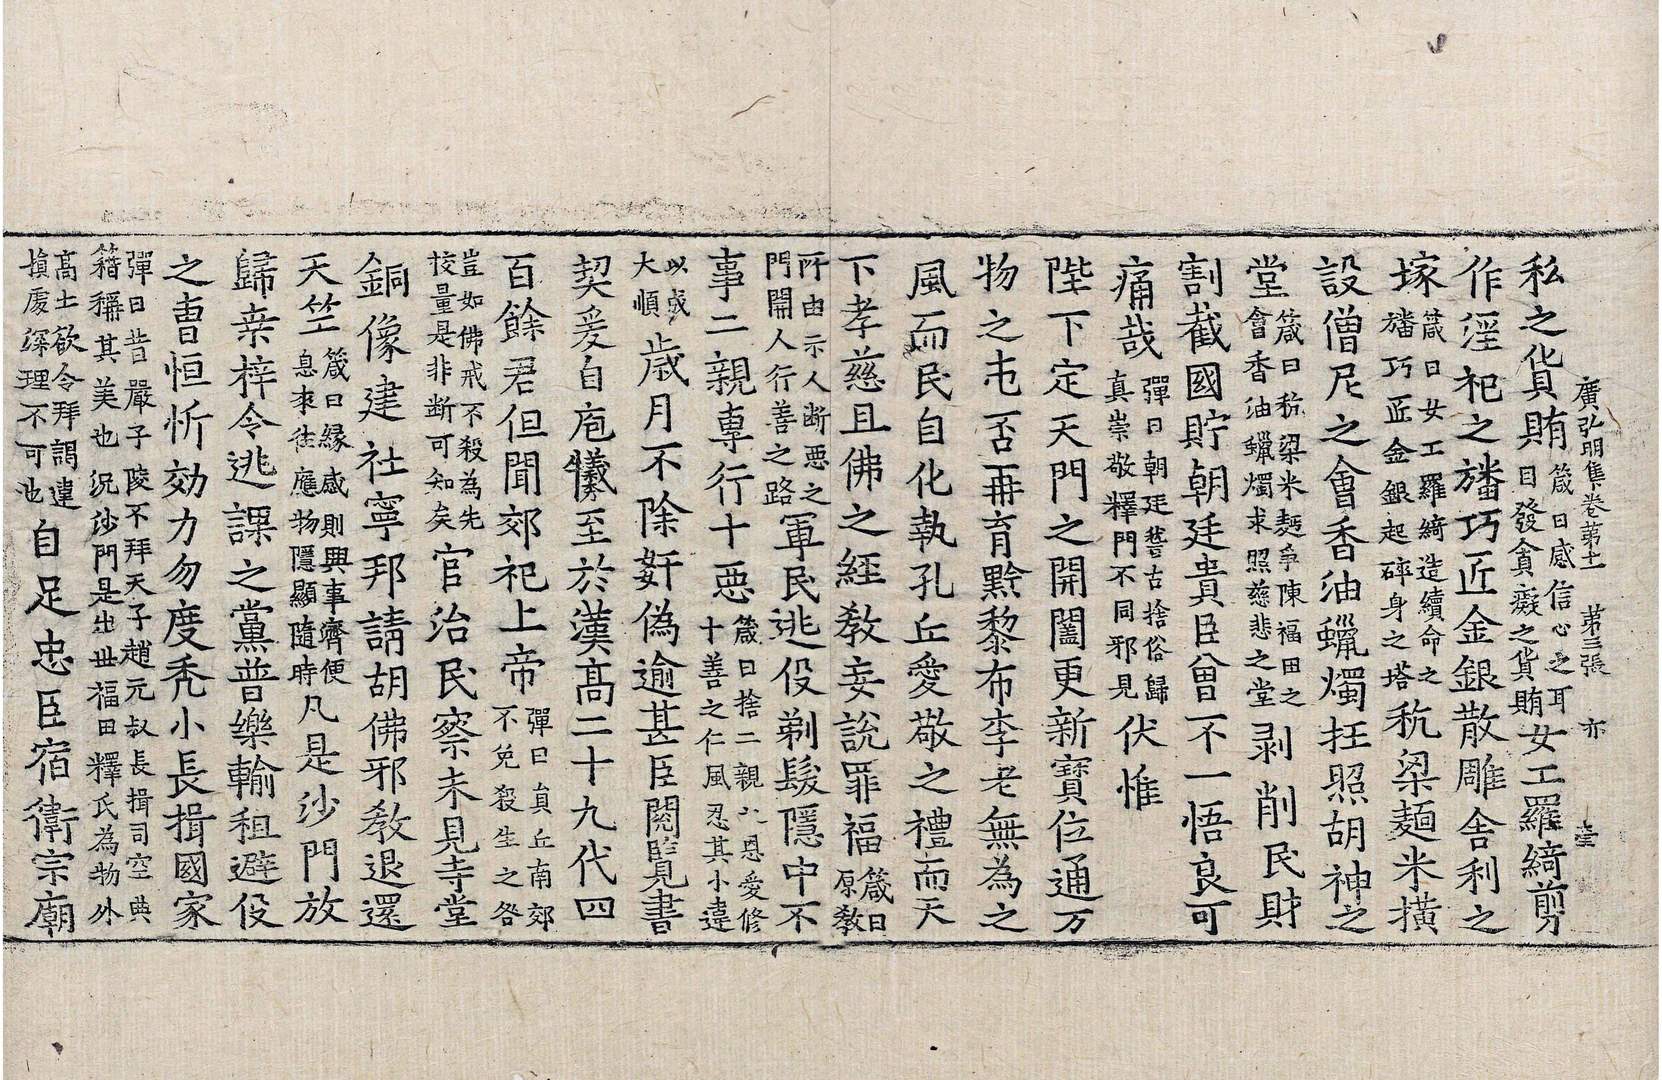 廣弘明集卷第十一 第三張 亦
私之貨賄箴曰感信心之耳目發貪癡之貨賄女工羅綺剪
作淫祀之旛巧匠金銀散雕舍利之
塚箴曰女工羅綺造續命之旛巧匠金銀起碎身之塔秔粱麵米橫
設僧尼之會香油蠟燭抂照胡神之
堂箴曰秔粱米麵爭陳福田之會香油蠟燭求照慈悲之堂剥削民財
割截國貯朝廷貴臣曾不一悟良可
痛哉彈曰朝廷誓古捨俗歸真崇敬釋門不同邪見伏惟
陛下定天門之開闔更新寶位通万
物之屯否再育黔黎布李老無為之
風而民自化執孔丘愛敬之禮而天
下孝慈且佛之經教妄說罪福箴曰原教
所由示人断惡之門開人行善之路軍民逃役剃髮隱中不
事二親專行十惡箴曰捨二親之恩愛修十善之仁風忍其小違
以成大順歲月不除姧偽逾甚臣閱覽書
契爰自庖犧至於漢髙二十九代四
百餘君但聞郊祀上帝彈曰貟丘南郊不免殺生之咎
豈如佛戒不殺為先挍量是非断可知矣官治民察未見寺堂
銅像建社寧邦請胡佛邪教退還
天竺箴曰緣感則興事齊便息來往應物隱顯隨時凡是沙門放
歸桒梓令逃課之黨普樂輸租避役
之曺恒忻効力勿度秃小長揖國家
彈曰昔嚴子陵不拜天子趙元叔長揖司空典籍稱其美也况沙門是出世福田釋氏為物外
髙士欲令拜謁違損處深理不可也自足忠臣宿衛宗廟